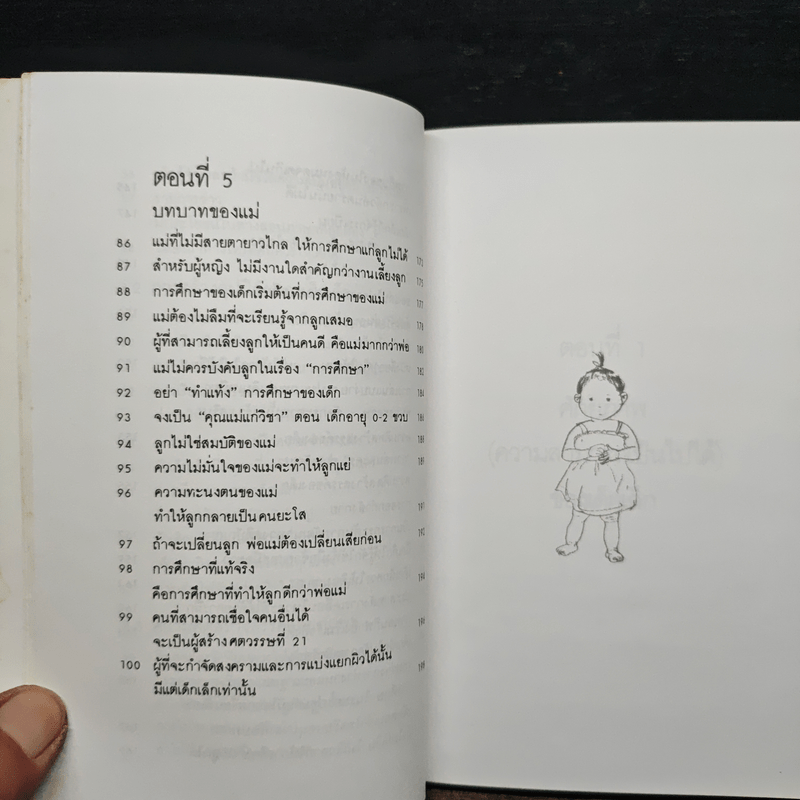 ตอนที่ 5
บทบาทของแม่
86 แม่ที่ไม่มีสายตายาวไกล ให้การศึกษาแก่ลูกไม่ได้ 173
87 สำหรับผู้หญิง ไม่มีงานใดสำคัญกว่างานเลี้ยงลูก 175
88 การศึกษาของเด็กเริ่มต้นที่การศึกษาของแม่ 177
89 แม่ต้องไม่ลืมที่จะเรียนรู้จากลูกเสมอ
90 ผู้ที่สามารถเลี้ยงลูกให้เป็นคนดี คือแม่มากกว่าพ่อ 180
91 แม่ไม่ควรบังคับลูกในเรื่อง “การศึกษา” 182
92 อย่า “ทำแท้ง” การศึกษาของเด็ก 184
93 จงเป็น “คุณแม่แก่วิชา” ตอน เด็กอายุ 0-2 ขวบ 186
94 ลูกไม่ใช่สมบัติของแม่
95 ความไม่มั่นใจของแม่จะทำให้ลูกแย่
96 ความทะนงตนของแม่
ทำให้ลูกกลายเป็นคนยะโส 191
97 ถ้าจะเปลี่ยนลูก พ่อแม่ต้องเปลี่ยนเสียก่อน
98 การศึกษาที่แท้จริง
คือการศึกษาที่ทำให้ลูกดีกว่าพ่อแม่ 194
99 คนที่สามารถเชื่อใจคนอื่นได้
จะเป็นผู้สร้างศตวรรษที่ 21
100 ผู้ที่จะกำจัดสงครามและการแบ่งแยกผิวได้นั้น
มีแต่เด็กเล็กเท่านั้น